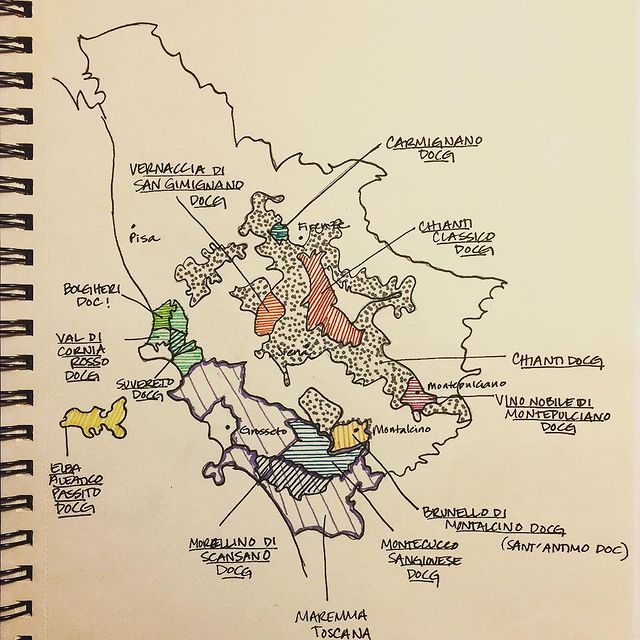 CARMIGNANO
DOCG
VERNACCIA DI
SAN GIMIGNANO
DOCG
Pisa
Firenze
CHIANTI
CLASSICO
DOCG
BOLGHERI
DOC!
VAL DI
CORNIA
ROSSO
DOCG
SUVERETO
DOCG
Siena
CHIANTI DOCG
Montepulciano
VINO NOBILE DI
MONTEPULCIANO
DOCG
Grosseto
Montalcino
ELBA
ALEATICO
PASSITO
DOCG
BRUNELLO DI
MONTALCINO DOCG
(SANT'ANTIMO DOC)
MORELLINO DI
SCANSANO
DOCG
MONTECUCCO
SANGIOVESE
DOCG
MAREMMA
TOSCANA